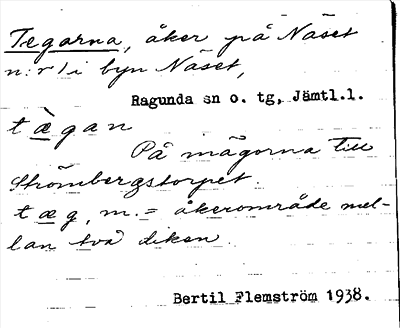 Tegarna, åker på Näset
n:r 1 i byn Näset,
Ragunda sn o. tg, Jämtl.l.
tæ̀gan
På mågorna till
Strömbergstorpet.
tæg, m. = åkerområde mel-
lan två diken.
Bertil Flemström 1938.